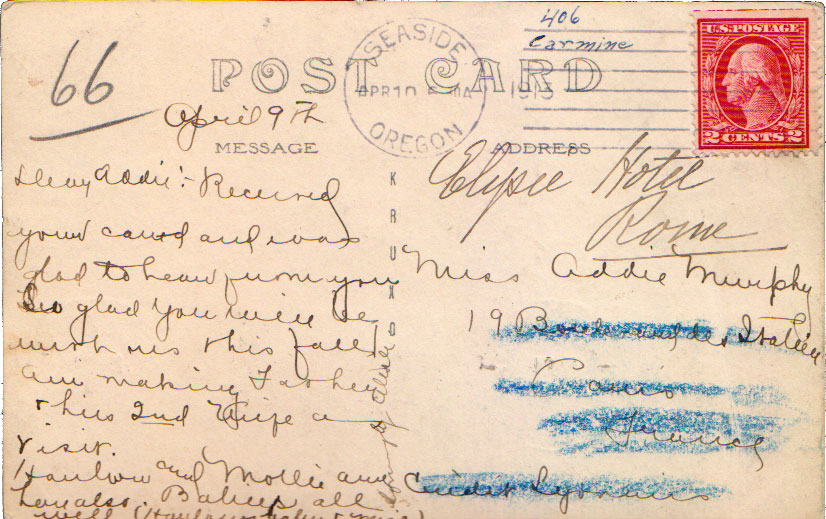 406
Carmine
U.S. POSTAGE
2 CENTS 2
SEASIDE
APR 10
1913
OREGON
66
POST CARD
April 9th
MESSAGE
ADDRESS
KRUXO
Dear Addie:- Received
your card and was
glad to hear from you
So glad you will be
with us this fall. I
am making Father
& his 2nd Wife a
visit.
and Mollie are
here also. Babies all
well
Elysee Hotel
Rome
Miss Addie Murphy
19 Boulevard des Italien
Paris
France
Credit Lyonnais